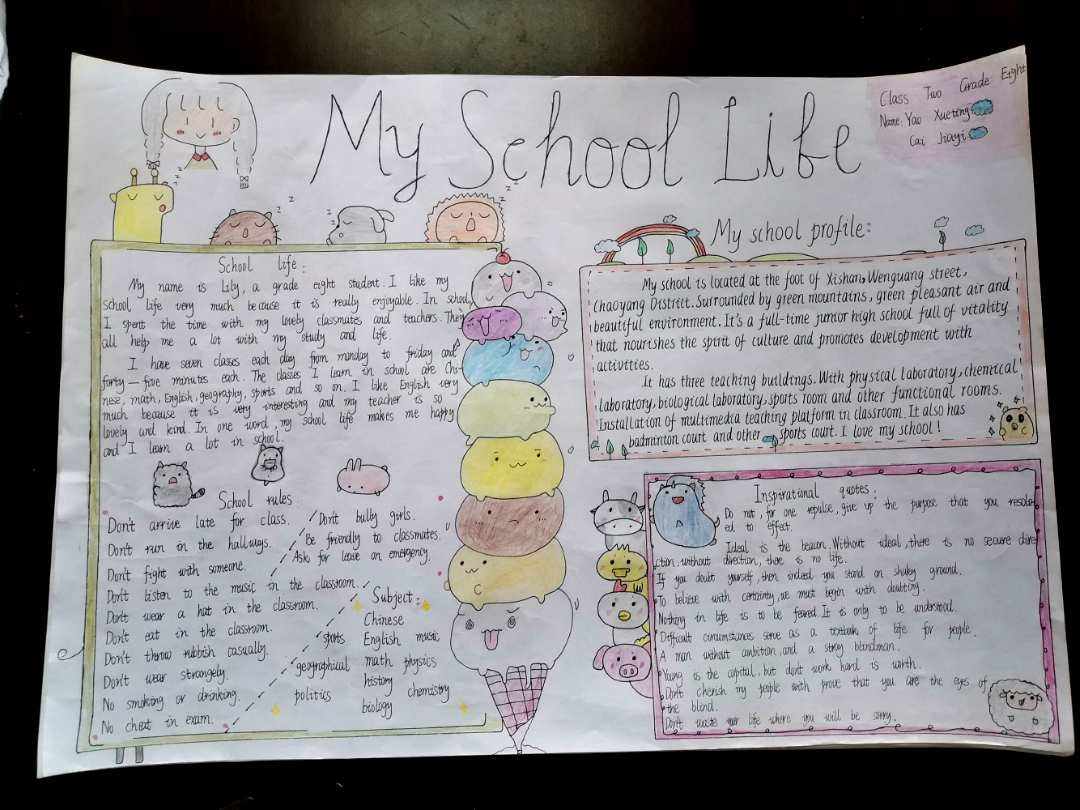 My School Life
Class Two Grade Eight
Name: Yao Xueting
Cai Jiayi
School life:
My name is Lily, a grade eight student. I like my
school life very much because it is really enjoyable. In school,
I spent the time with my lovely classmates and teachers. They
all help me a lot with my study and life.
I have seven classes each day from monday to friday and
forty-five minutes each. The classes I learn in school are Chi-
nese, math, English, geography, sports and so on. I like English very
much because it is very interesting and my teacher is so
lovely and kind. In one word, my school life makes me happy
and I learn a lot in school.
School rules
Don't arrive late for class.
Don't run in the hallways.
Don't fight with someone.
Don't listen to the music in the classroom.
Don't wear a hat in the classroom.
Don't eat in the classroom.
Don't throw rubbish casually.
Don't wear strangely.
No smoking or drinking.
No cheat in exam.
Don't bully girls.
Be friendly to classmates.
Asks for leave an emergency.
Subject:
Chinese
sports English music
geographical math physics
history
politics chemistry
biology
My school profile:
My school is located at the foot of Xishan, Wenguang street,
Chaoyang District. Surrounded by green mountains, green pleasant air and
beautiful environment. It's a full-time junior high school full of vitality
that nourishes the spirit of culture and promotes development with
activities.
It has three teaching buildings. With physical laboratory, chemical
laboratory, biological laboratory, sports room and other functional rooms.
Installation of multimedia teaching platform in classroom. It also has
badminton court and other sports court. I love my school!
Inspirational quotes:
Do not, for one repulse, give up the purpose that you resolv-
ed to effect.
Ideal is the beacon. Without ideal, there is no secure dire-
ction, without direction, there is no life.
If you doubt yourself, then indeed you stand on shaky ground.
To believe with certainty, we must begin with doubting.
Nothing in life is to be feared. It is only to be understood.
Difficult circumstances serve as a textbook of life for people.
A man without ambition, and a stray blindman.
Young is the capital, but don't work hard is worth.
Don't cherish my people with prove that you are the eyes of
the blind.
Don't waste your life where you will be sorry.